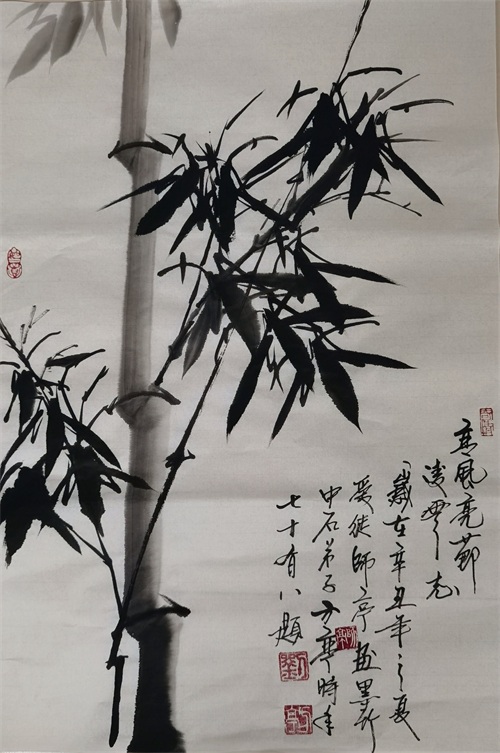 高風亮節
凌雲志
歲在辛丑年之夏
愛徒師亭畫墨竹
中石弟子時年
七十有八題